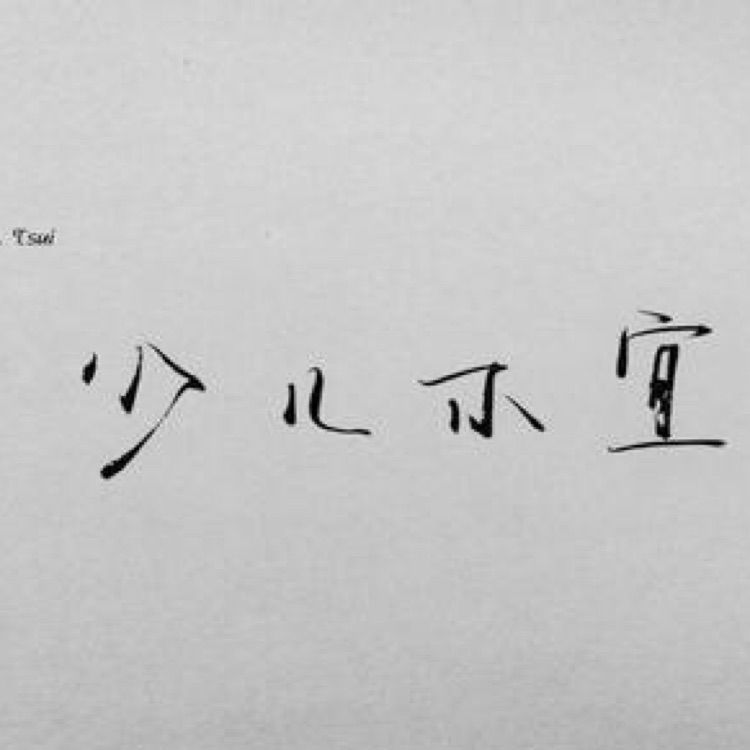 . Tsui
少儿不宜